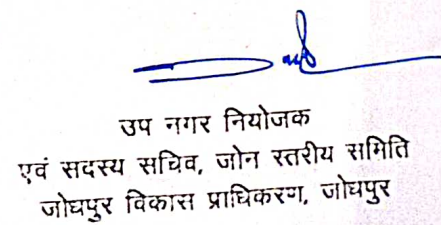 उप नगर नियोजक
एवं सदस्य सचिव, जोन स्तरीय समिति
जोधपुर विकास प्राधिकरण, जोधपुर